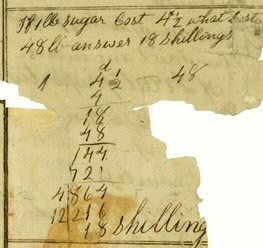 If 1 lb sugar Cost 4 1/2 what Cost
48 lb answer 18 shillings
d
1 4 1/2 — 48
4
18
48
144
72
4 864
12 216
18 shilling